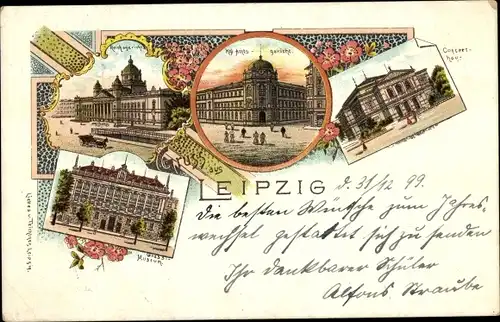 Reichsgericht
Kgl. Amts-gericht
Concert-haus
Grassi-Museum
LEIPZIG d. 31/12 99.
Die besten Wünsche zum Jahres-
wechsel gestattet sich zu senden
Ihr dankbarer Schüler
Alfons Straube